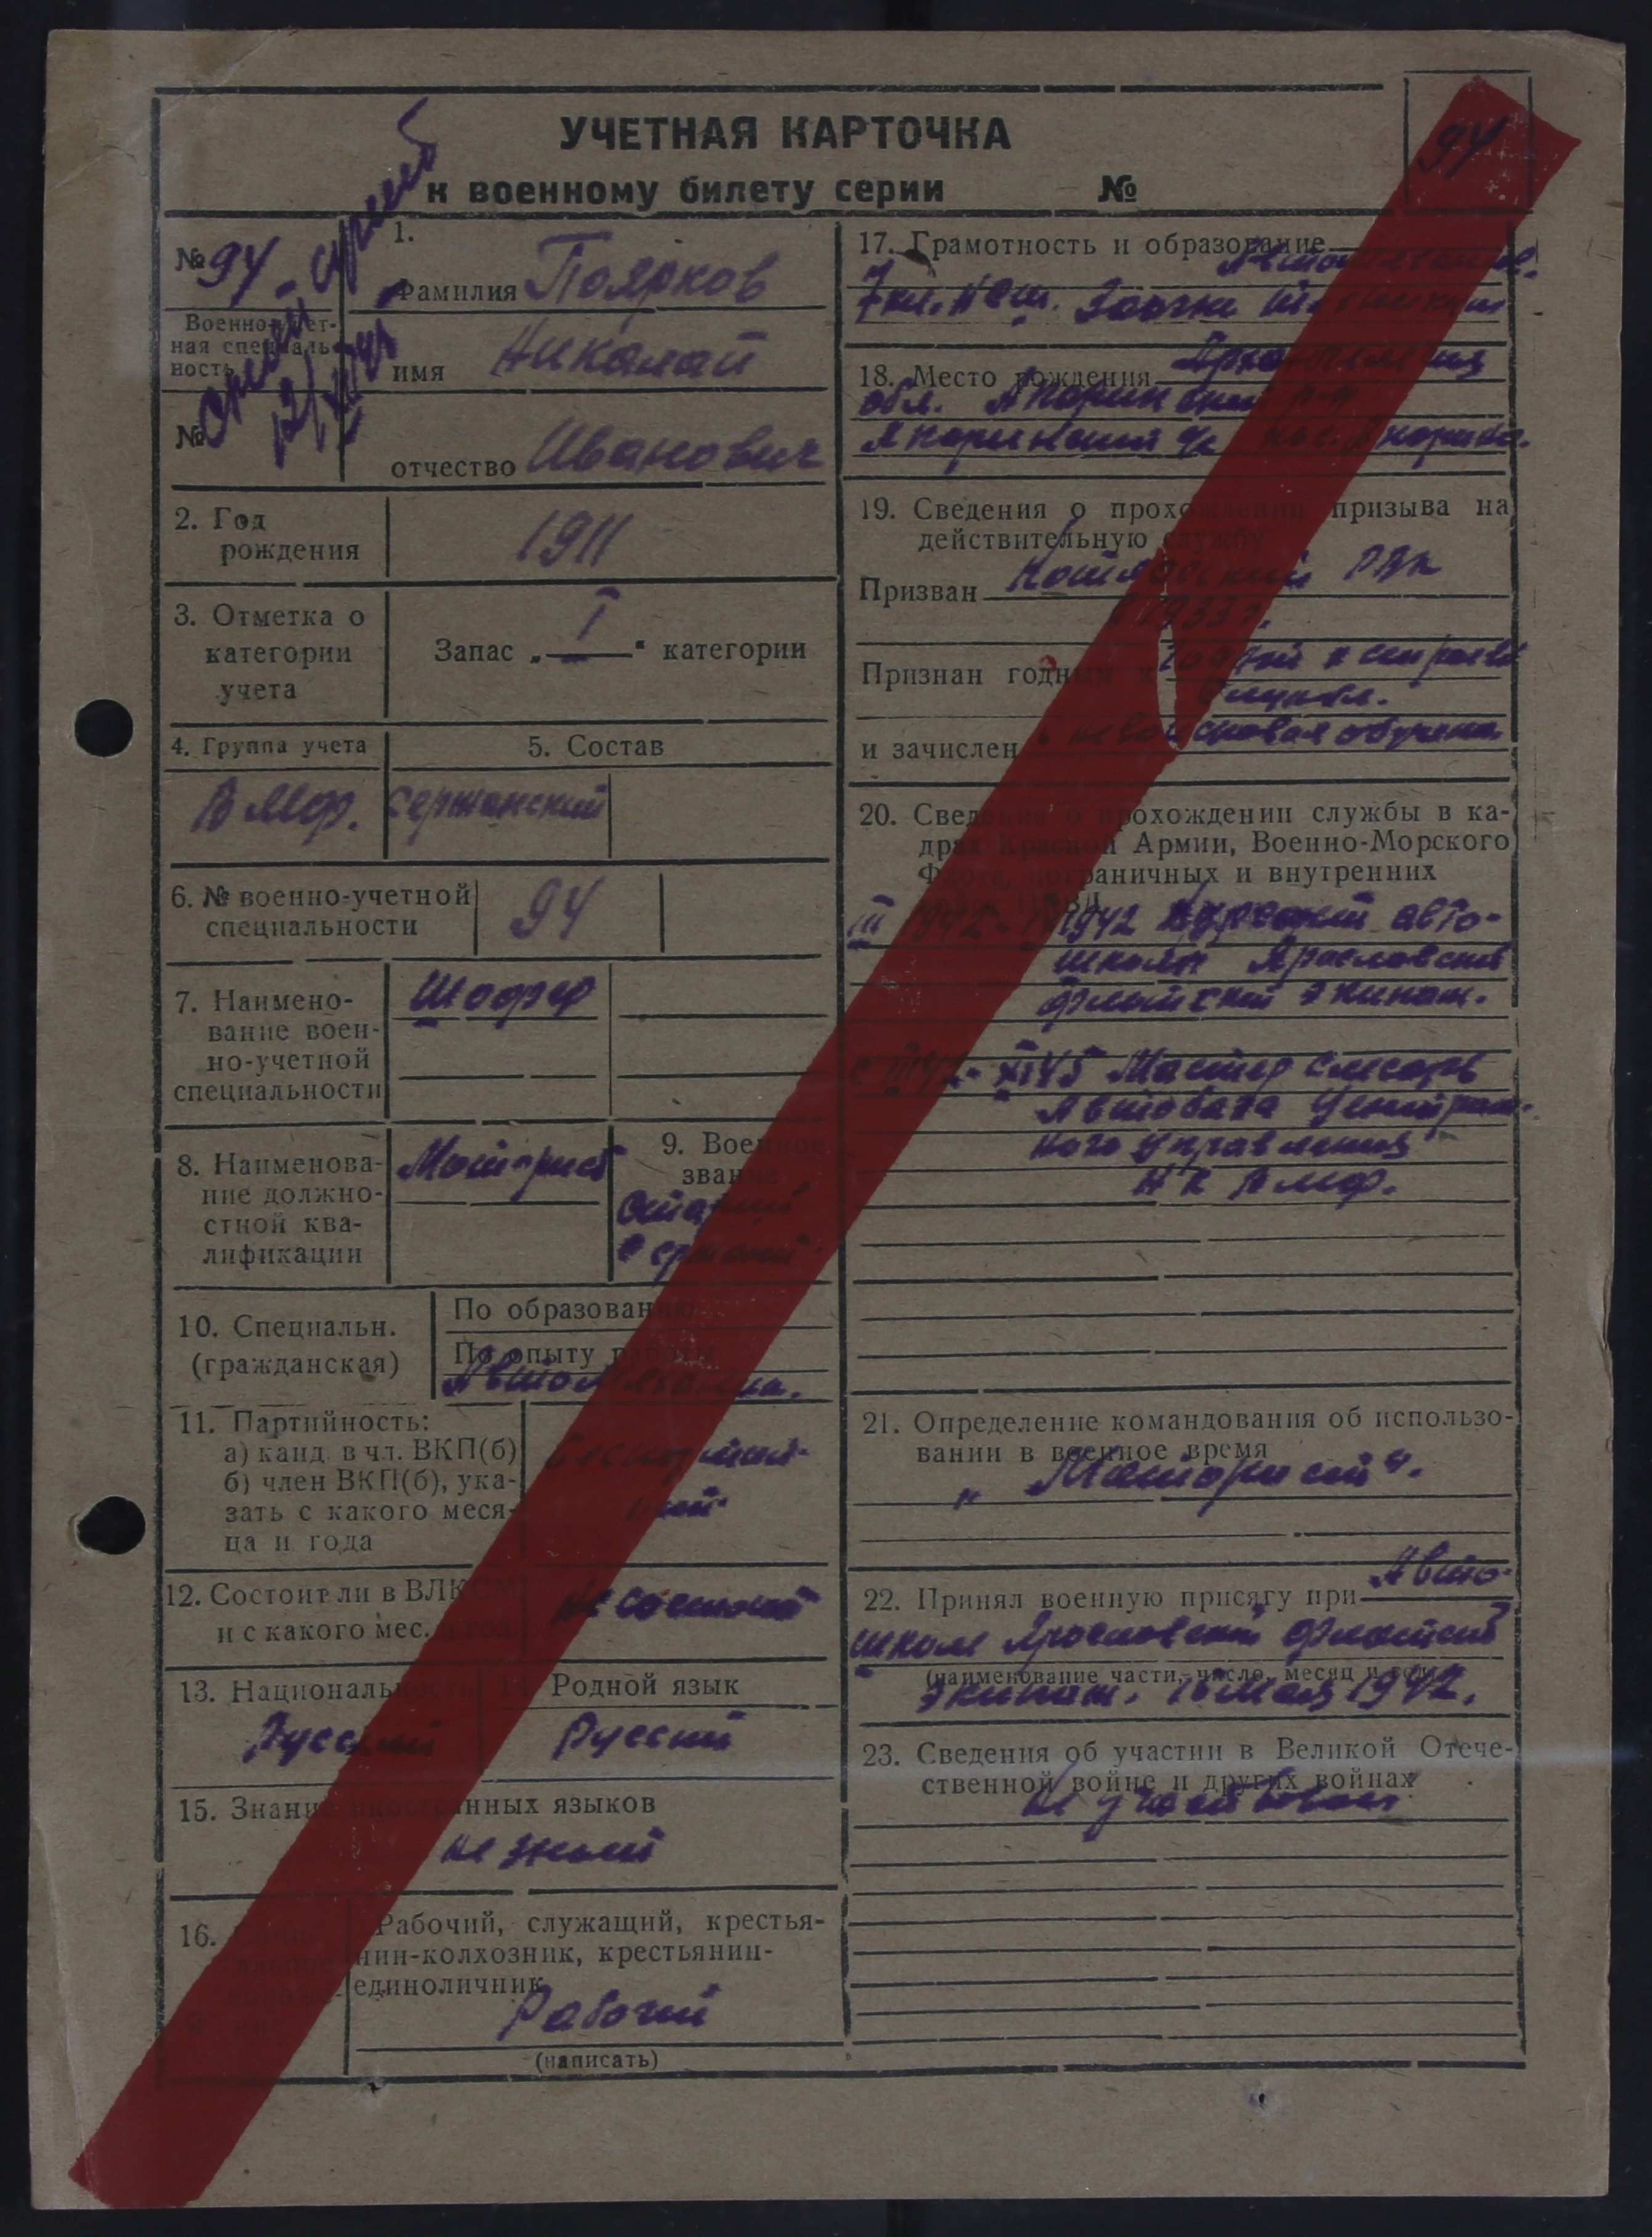 УЧЕТНАЯ КАРТОЧКА
к военному билету серии №
94
№ 94.
Военно-учет-
ная специаль-
ность
№
1.
Фамилия Поярков
имя Николай
отчество Иванович
2. Год
рождения
1911
3. Отметка о
категории
учета
Запас „ I “ категории
4. Группа учета
5. Состав
ВМФ. Сержанский
6. № военно-учетной
специальности
94
7. Наимено-
вание воен-
но-учетной
специальности
Шофер
8. Наименова-
ние должно-
стной ква-
лификации
Моторист
9. Военное
звание
Старший
сержант
10. Специальн.
(гражданская)
По образованию
По опыту работы
Автомеханик.
11. Партийность:
а) канд. в чл. ВКП(б)
б) член ВКП(б), ука-
зать с какого меся-
ца и года
Беспартий-
ный
12. Состоит ли в ВЛКСМ
и с какого мес. и год.
не состоит
13. Национальность
Русский
14. Родной язык
Русский
15. Знание иностранных языков
не знает
16.
Рабочий, служащий, крестья-
нин-колхозник, крестьянин-
единоличник
Рабочий
(написать)
17. Грамотность и образование
7 кл. НСШ. Заочн.
18. Место рождения
обл. р-н
19. Сведения о прохождении призыва на
действительную службу
Призван Котласский РВК
в 1933 г.
Признан годным к годной к строевой
службе.
и зачислен невойсковая обучена
20. Сведения о прохождении службы в ка-
драх Красной Армии, Военно-Морского
Флота, пограничных и внутренних
войск НКВД
III 1942 - 1942 Курсант авто-
школы Ярославский
флотский экипаж.
с 42 - XI 45 Мастер слесарь
Автобата Централь-
ного управления
НК ВМФ.
21. Определение командования об использо-
вании в военное время
„Моторист“.
22. Принял военную присягу при Авто-
школе Ярославский флотский
(наименование части, число, месяц и год)
экипаж. 16 мая 1942.
23. Сведения об участии в Великой Отече-
ственной войне и других войнах
не участвовал